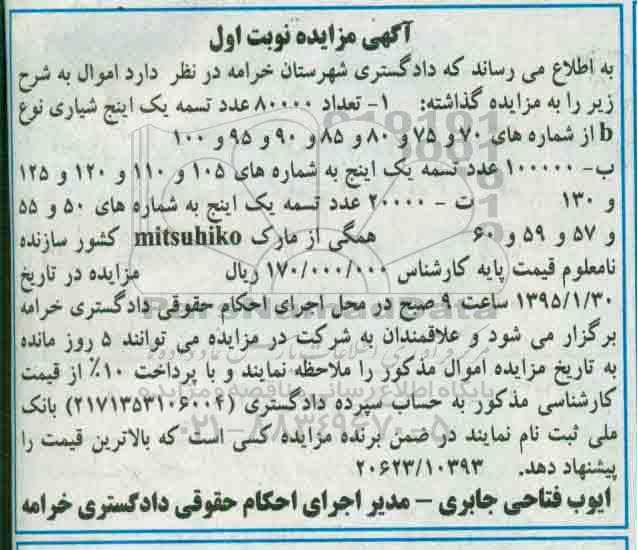 آگهی مزایده نوبت اول
به اطلاع می رساند که دادگستری شهرستان خرامه در نظر دارد اموال به شرح
زیر را به مزایده گذاشته: ۱- تعداد ۸۰۰۰۰ عدد تسمه یک اینچ شیاری نوع
b از شماره های ۷۰ و ۷۵ و ۸۰ و ۸۵ و ۹۰ و ۹۵ و ۱۰۰
ب- ۱۰۰۰۰۰ عدد تسمه یک اینچ به شماره های ۱۰۵ و ۱۱۰ و ۱۲۰ و ۱۲۵
و ۱۳۰ ت - ۲۰۰۰۰ عدد تسمه یک اینچ به شماره های ۵۰ و ۵۵
و ۵۷ و ۵۹ و ۶۰ همگی از مارک mitsuhiko کشور سازنده
نامعلوم قیمت پایه کارشناس ۱۷۰/۰۰۰/۰۰۰ ریال مزایده در تاریخ
۱۳۹۵/۱/۳۰ ساعت ۹ صبح در محل اجرای احکام حقوقی دادگستری خرامه
برگزار می شود و علاقمندان به شرکت در مزایده می توانند ۵ روز مانده
به تاریخ مزایده اموال مذکور را ملاحظه نمایند و با پرداخت ۱۰٪ از قیمت
کارشناسی مذکور به حساب سپرده دادگستری (۲۱۷۱۳۵۳۱۰۶۰۰۴) بانک
ملی ثبت نام نمایند در ضمن برنده مزایده کسی است که بالاترین قیمت را
پیشنهاد دهد. ۲۰۶۲۳/۱۰۳۹۳
ایوب فتاحی جابری – مدیر اجرای احکام حقوقی دادگستری خرامه
پایگاه اطلاع رسانی مناقصه و مزایده
۰۲۱-۸۸۳۴۹۶۷۰-۵